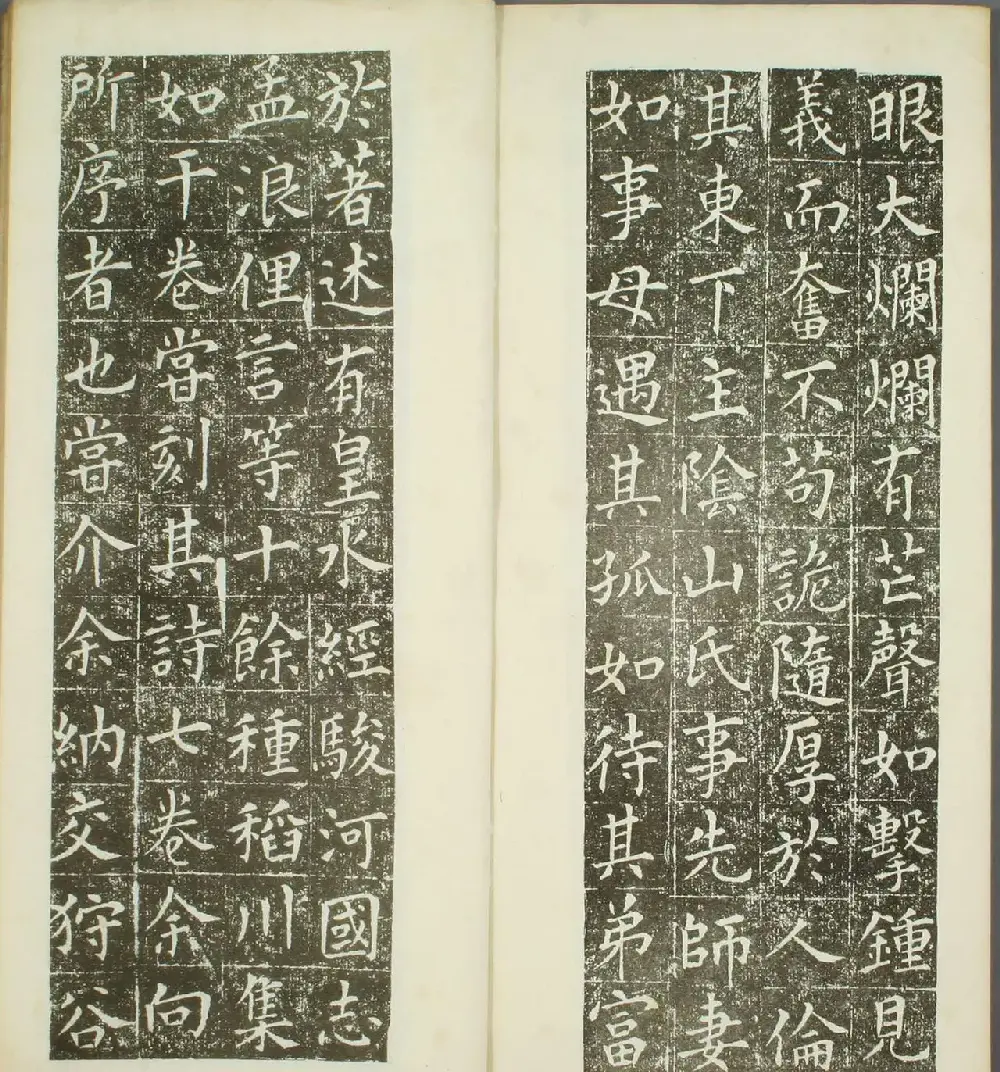 眼大爛爛有芒聲如擊鍾見
義而奮不苟詭隨厚於人倫
其東下主陰山氏事先師妻
如事母遇其孤如待其弟富
於著述有皇水經駿河國志
孟浪俚言等十餘種稻川集
如干卷嘗刻其詩七卷余向
所序者也嘗介余納交狩谷